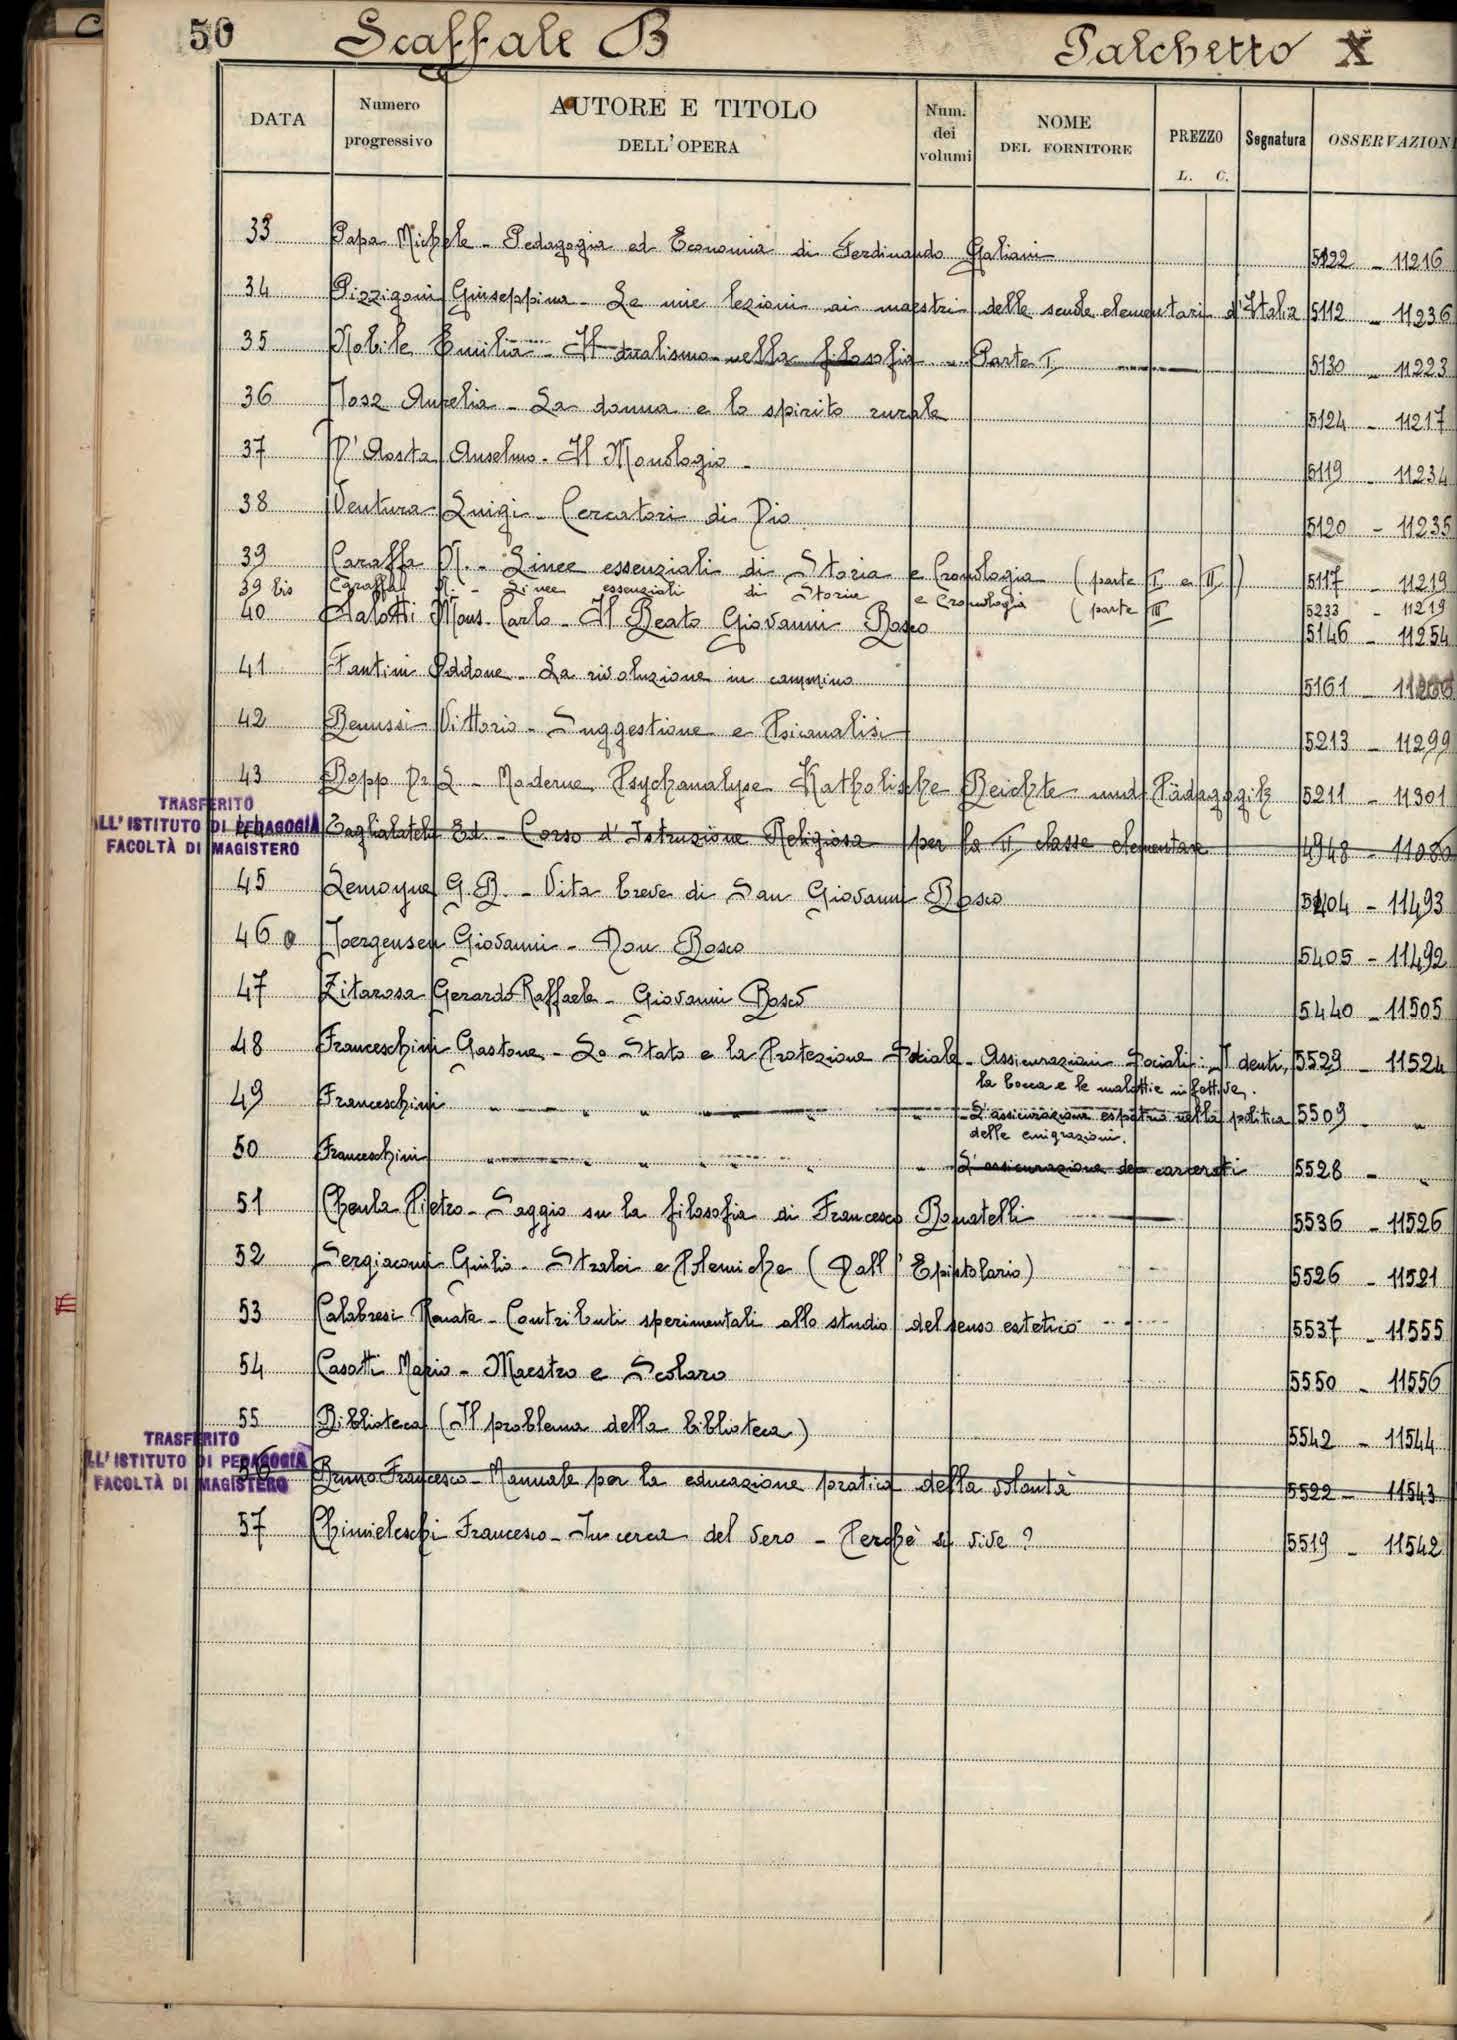 50 Scaffale B Palchetto X
DATA Numero progressivo AUTORE E TITOLO DELL'OPERA Num. dei volumi NOME DEL FORNITORE PREZZO L. C. Segnatura OSSERVAZIONI
33 Papa Michele - Pedagogia ed Economia di Ferdinando Galiani 5122 - 11216
34 Pizzigoni Giuseppina - Le mie lezioni ai maestri delle scuole elementari d'Italia 5112 - 11236
35 Nobile Emilia - Il dualismo nella filosofia - Parte I 5130 - 11223
36 Josz Aurelia - La donna e lo spirito rurale 5124 - 11217
37 D'Aosta Anselmo - Il Monologio - 5119 - 11234
38 Ventura Luigi - Cercatori di Dio 5120 - 11235
39 Caraffa N. - Linee essenziali di Storia e Cronologia (parte I e II) 5117 - 11219
39 bis Caraffa N. - Linee essenziali di Storia e Cronologia (parte III 5233 - 11219
40 Salotti Mons. Carlo - Il Beato Giovanni Bosco 5146 - 11254
41 Fantini Oddone - La rivoluzione in cammino 5161 -
42 Benussi Vittorio - Suggestione e Psicanalisi 5213 - 11299
43 Bopp Dr L - Moderne Psychanalyse Katholische Beichte und Pädagogik 5211 - 11301
TRASFERITO
ALL'ISTITUTO DI PEDAGOGIA
FACOLTÀ DI MAGISTERO
44 Taglialatela Ed. - Corso d'Istruzione Religiosa per la II classe elementare 4948 - 11086
45 Lemoyne G.B. - Vita breve di San Giovanni Bosco 5404 - 11493
46 Joergensen Giovanni - Don Bosco 5405 - 11492
47 Zitarosa Gerardo Raffaele - Giovanni Bosco 5440 - 11505
48 Franceschini Gastone - Lo Stato e la Protezione Sociale - Assicurazioni Sociali: I denti, 5529 - 11524
la bocca e le malattie infettive.
49 Franceschini " " " " " - L'assicurazione espatrio nella politica 5509 - "
delle emigrazioni.
50 Franceschini " " " " " " - L'assicurazione dei carcerati 5528 - "
51 Cheula Pietro - Saggio su la filosofia di Francesco Bonatelli 5536 - 11526
52 Sergiacomi Giulio - Stralci e Polemiche (Dall'Epistolario) 5526 - 11521
53 Calabresi Renata - Contributi sperimentali allo studio del senso estetico 5537 - 11555
54 Casotti Mario - Maestro e Scolaro 5550 - 11556
55 Biblioteca (Il problema della biblioteca) 5542 - 11544
TRASFERITO
ALL'ISTITUTO DI PEDAGOGIA
FACOLTÀ DI MAGISTERO
56 Bruno Francesco - Manuale per la educazione pratica della volontà 5522 - 11543
57 Chimieleschi Francesco - In cerca del vero - Perchè si vive? 5519 - 11542